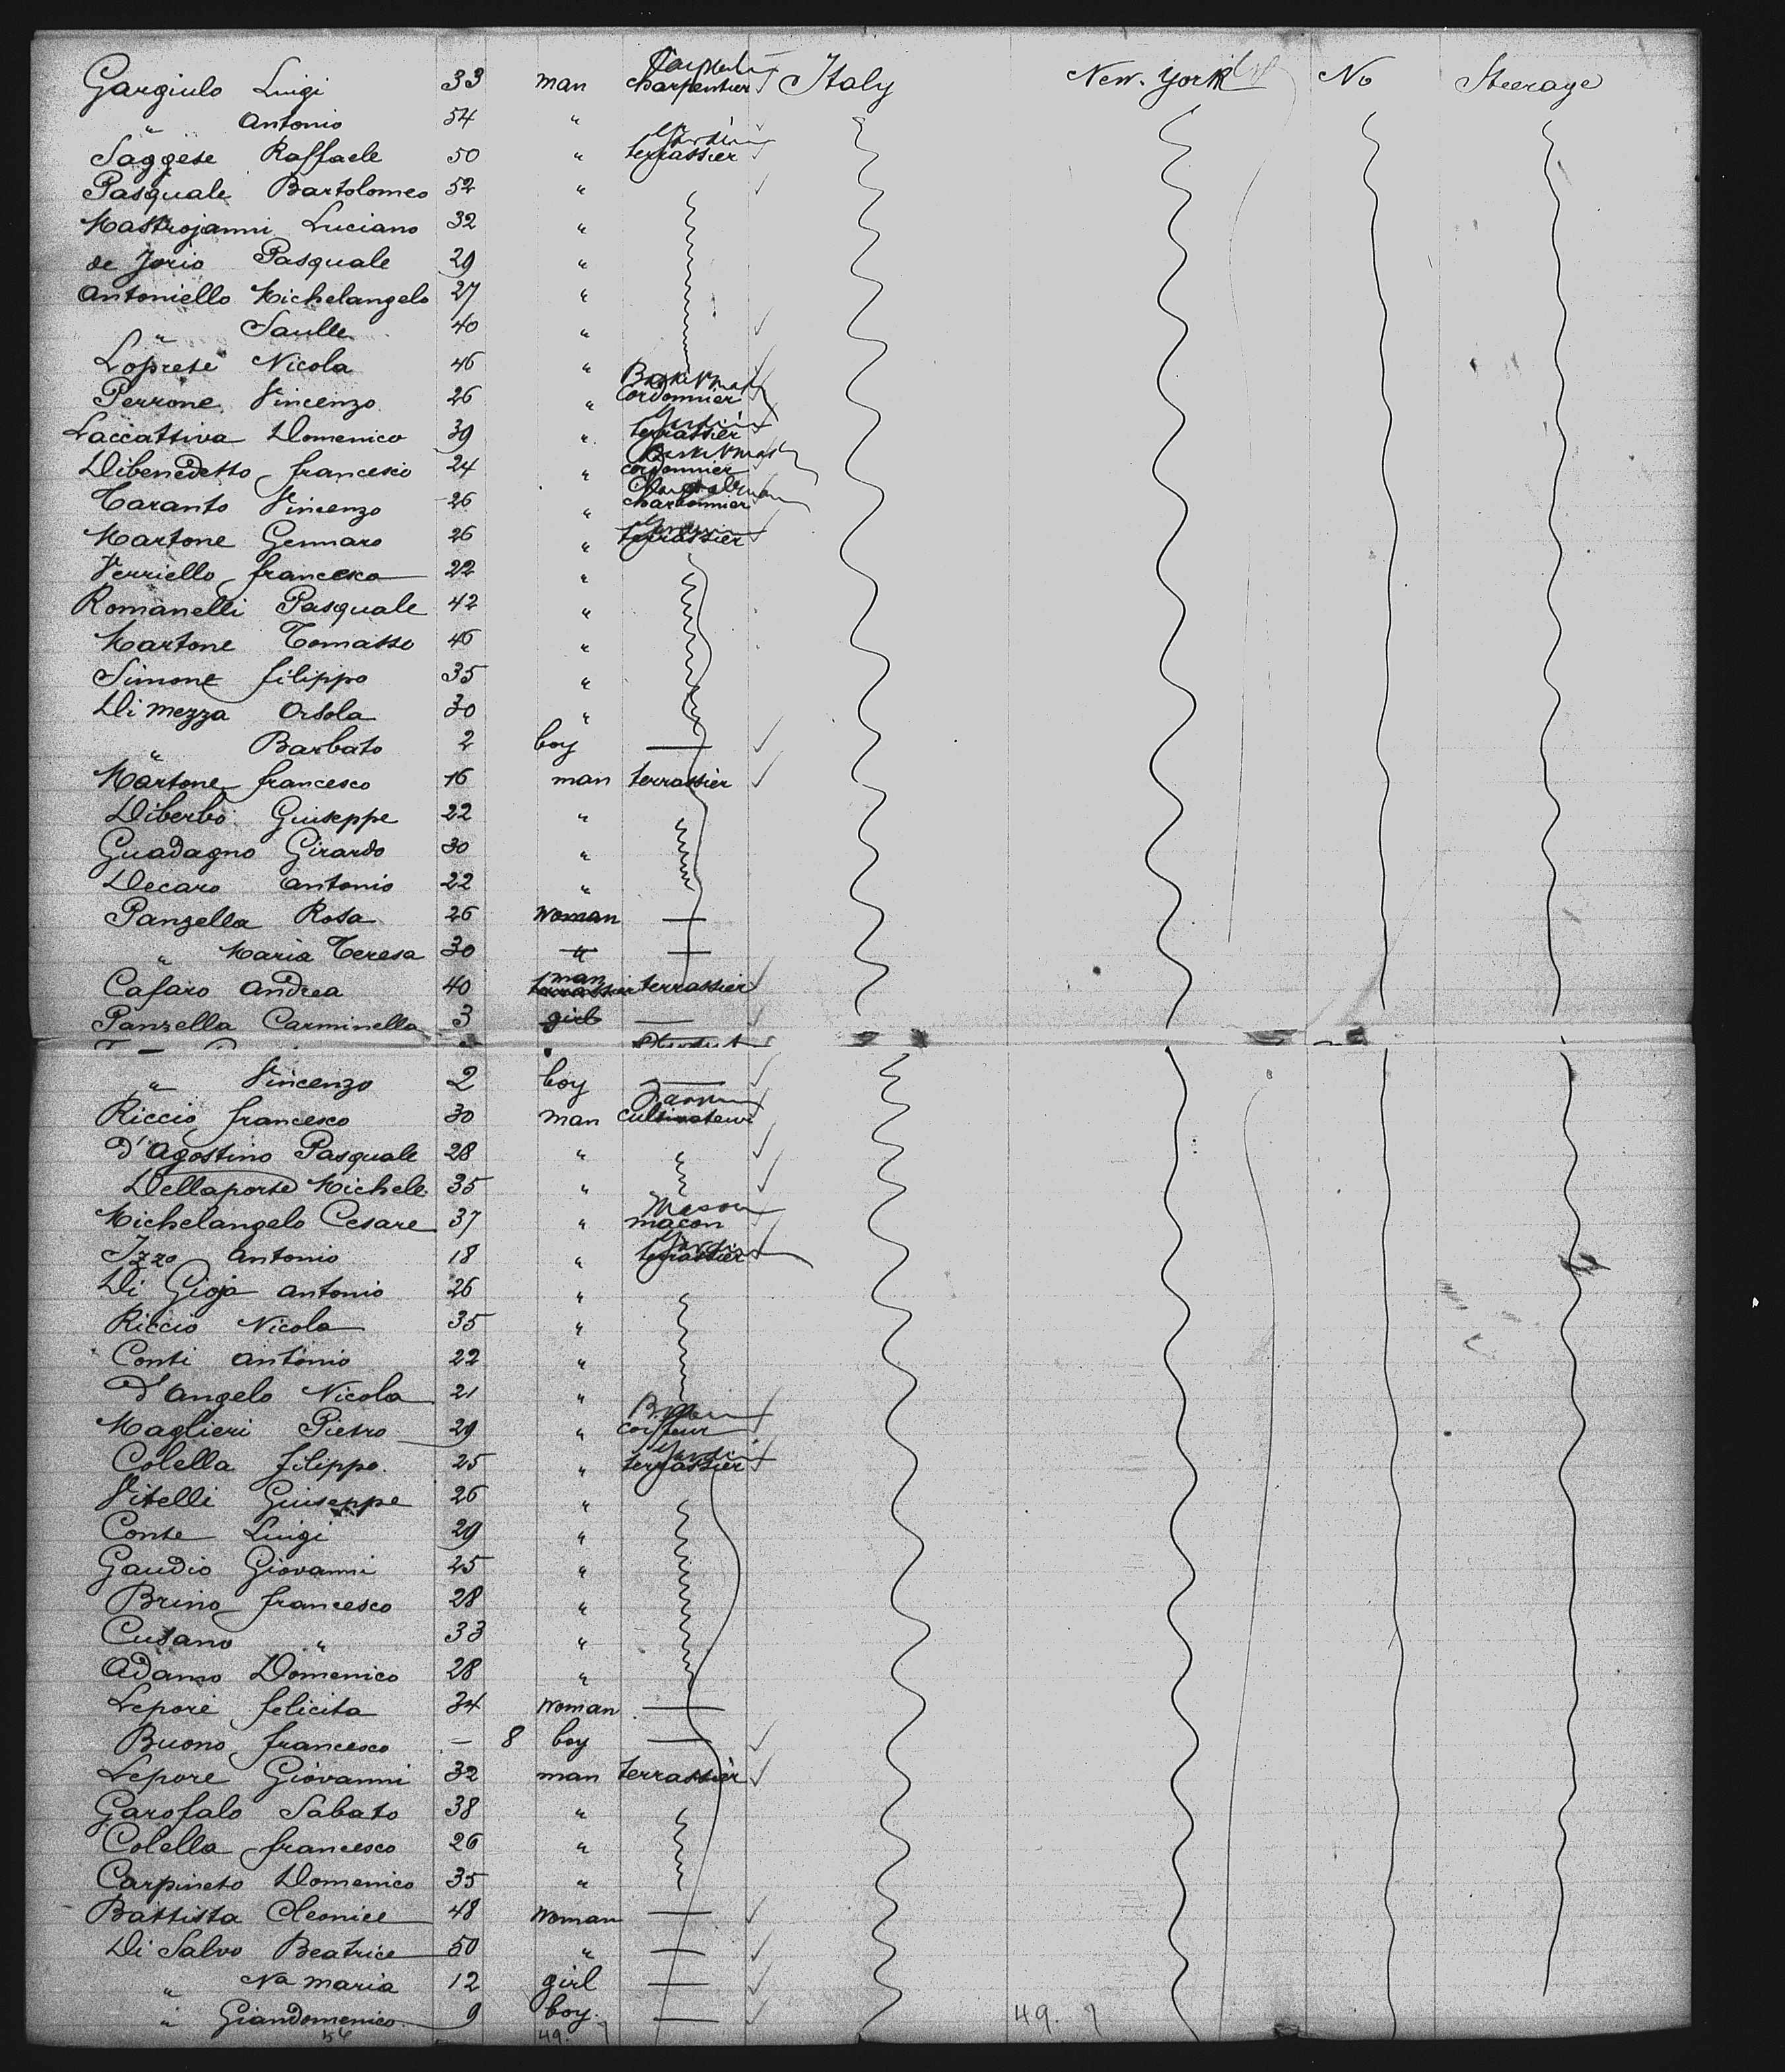 Gargiulo Luigi 33 man charpentier Italy New-York No Steerage
" Antonio 54 "
Saggese Raffaele 50 " terrassier
Pasquale Bartolomeo 52 "
Mastrojanni Luciano 32 "
de Jorio Pasquale 29 "
Antoniello Michelangelo 27 "
" Saulle 40 "
Loprete Nicola 46 "
Perrone Vincenzo 26 " Cordonnier
Laccattiva Domenico 39 " terrassier
Dibenedetto francesco 24 " cordonnier
Taranto Vincenzo 26 " charbonnier
Martone Gennaro 26 " terrassier
Verriello francesco 22 "
Romanelli Pasquale 42 "
Martone Tomasso 46 "
Simone filippo 35 "
Di mezza Orsola 30 "
" Barbato 2 boy —
Martone francesco 16 man terrassier
Diberbo Giuseppe 22 "
Guadagno Girardo 30 "
Decaro Antonio 22 "
Panzella Rosa 26 woman —
" Maria Teresa 30 " —
Cafaro Andrea 40 man terrassier
Panzella Carminella 3 girl —
" Vincenzo 2 boy —
Riccio francesco 30 man cultivateur
d'Agostino Pasquale 28 "
Dellaporte Michele 35 "
Mason
Michelangelo Cesare 37 " maçon
Izzo Antonio 18 " terrassier
Di Gioja Antonio 26 "
Riccio Nicola 35 "
Conti Antonio 22 "
d'Angelo Nicola 21 "
Maglieri Pietro 29 " coiffeur
Colella filippo 25 " terrassier
Vitelli Giuseppe 26 "
Conte Luigi 29 "
Gaudio Giovanni 25 "
Brino francesco 28 "
Cusano " 33 "
Adamo Domenico 28 "
Lepore felicita 34 woman —
Buono francesco — 8 boy —
Lepore Giovanni 32 man terrassier
Garofalo Sabato 38 "
Colella francesco 26 "
Carpineto Domenico 35 "
Battista Cleonice 48 woman —
Di Salvo Beatrice 50 " —
" Na maria 12 girl —
" Giandomenico 9 boy —
49. 49.